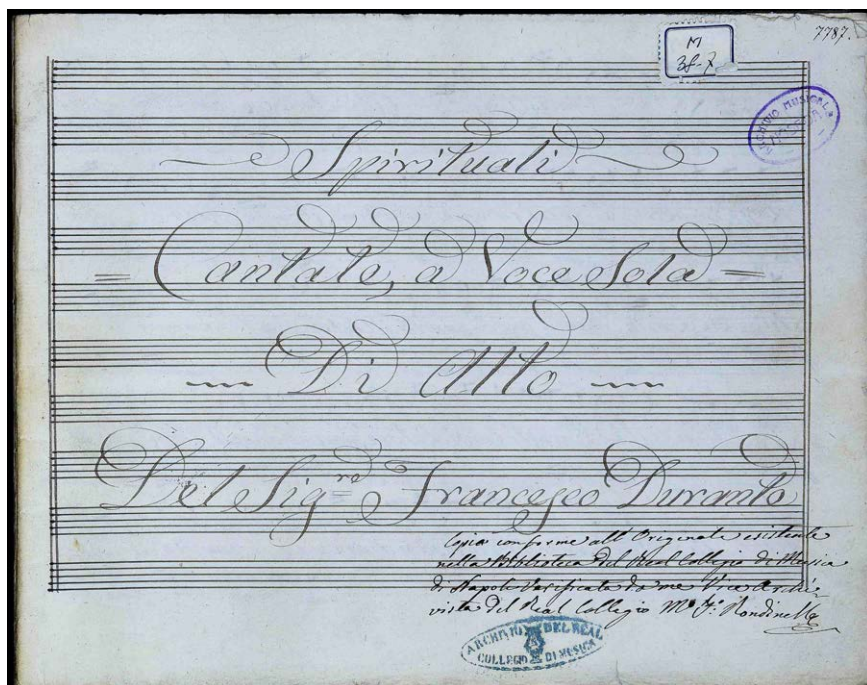 7787.
M
38-7
ARCHIVIO MUSICALE
Spirituali
= Cantate, a Voce Sola =
Di Alto
Del Sig.re Francesco Durante
Copia conforme all' Originale esistente
nella Biblioteca del Real Collegio di Musica
di Napoli Verificata da me Vice Archi-
vista del Real Collegio M.o F. Rondinella
ARCHIVIO DEL REAL
COLLEGIO DI MUSICA